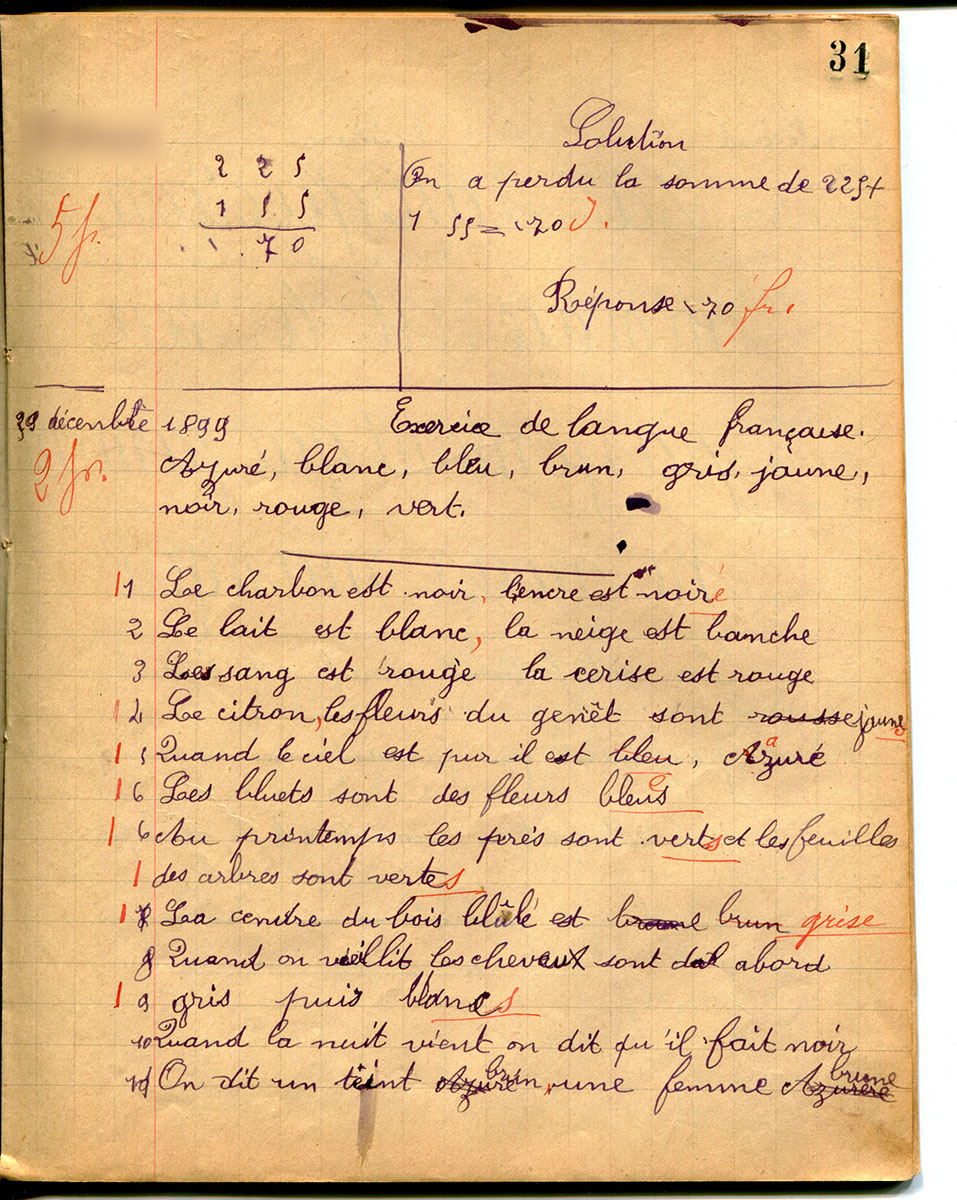 31
Solution
2 2 5
1 5 5
70
On a perdu la somme de 225+
1 55 = 70 f.
5 fr.
Réponse 70 fr.
29 décembre 1899
Exercice de langue française.
2 fr.
Azuré, blanc, bleu, brun, gris, jaune,
noir, rouge, vert.
1 1 Le charbon est noir, l'encre est noire
2 Le lait est blanc, la neige est banche
3 Le sang est rouge la cerise est rouge
1 4 Le citron, les fleurs du genêt sont rousse jaunes
1 5 Quand le ciel est pur il est bleu, Azuré
1 6 Les bluets sont des fleurs bleues
1 6 Au printemps les prés sont verts et les feuilles
1 des arbres sont vertes
1 7 La cendre du bois blûlé est brune brun grise
8 Quand on vieillit les cheveux sont dal abord
1 9 gris puis blancs
10 Quand la nuit vient on dit qu'il fait noir
11 On dit un teint Azuré brun, une femme Azurere brune